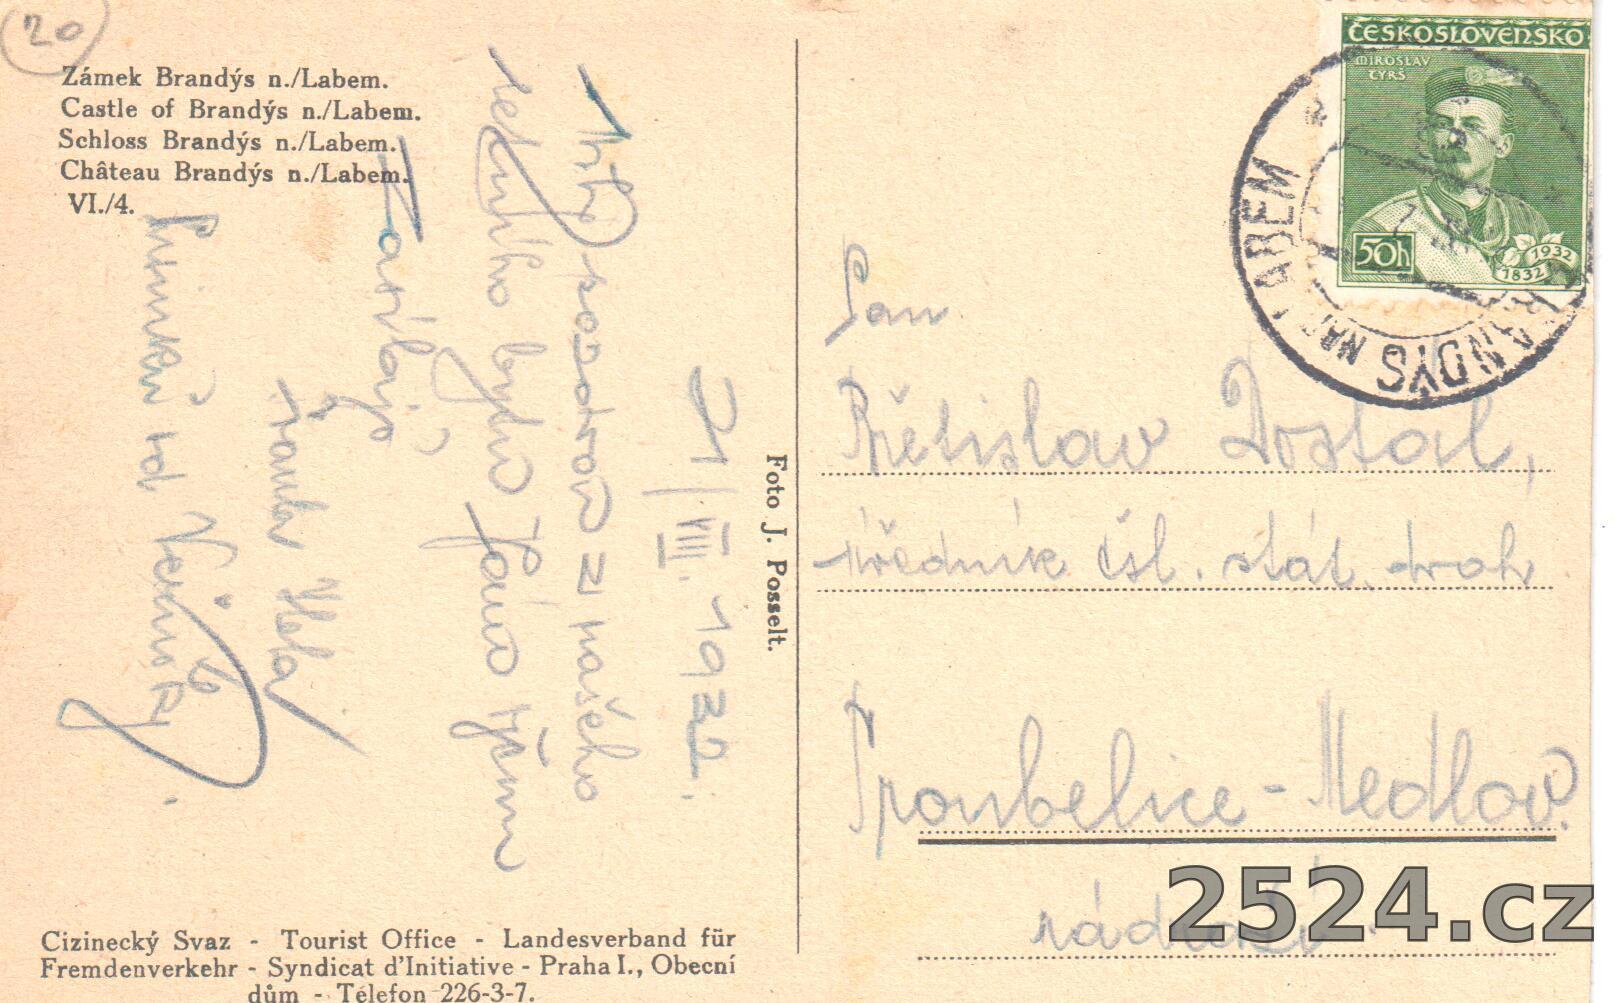 20
Zámek Brandýs n./Labem.
Castle of Brandýs n./Labem.
Schloss Brandýs n./Labem.
Château Brandýs n./Labem.
VI./4.
21/VIII. 1932.
pozdrav z našeho
letního bytu Vám všem
zasílají
od
Foto J. Posselt.
Cizinecký Svaz - Tourist Office - Landesverband für
Fremdenverkehr - Syndicat d'Initiative - Praha I., Obecní
dům - Télefon 226-3-7.
ČESKOSLOVENSKO
MIROSLAV
TYRŠ
50h
1932
1832
BRANDÝS NAD LABEM
Pan
Břetislav Dostal,
úředník čsl. stát. drah
Troubelice - Medlov.
nádraží.
2524.cz